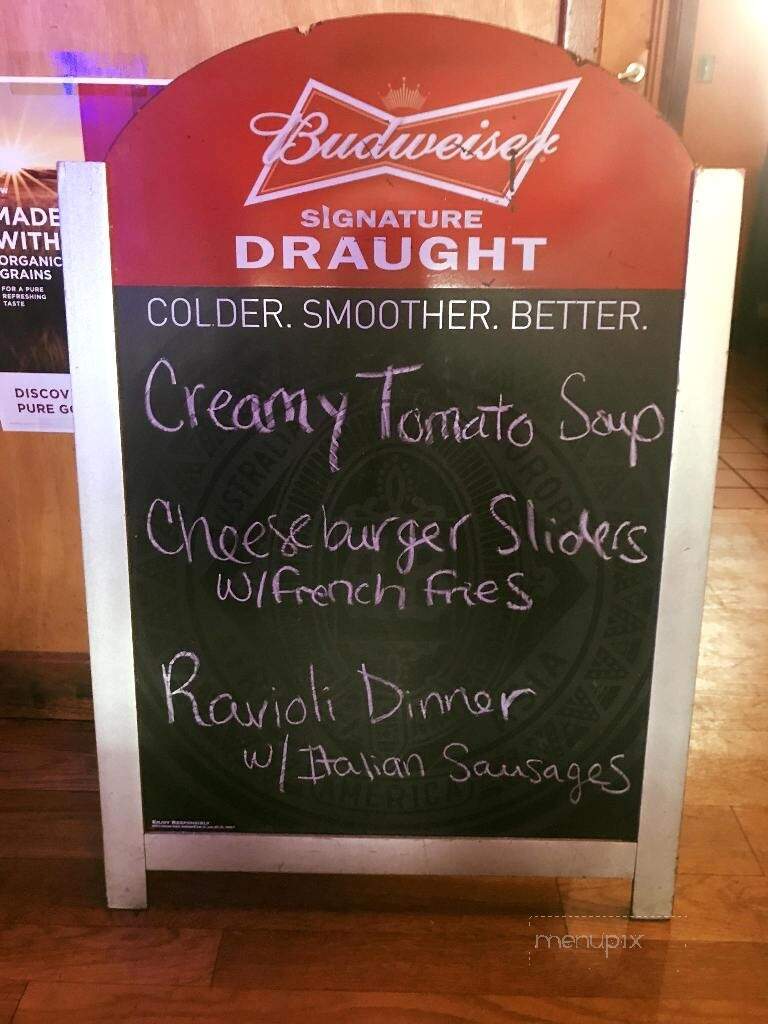 Budweiser
SIGNATURE
DRAUGHT
COLDER. SMOOTHER. BETTER.
Creamy Tomato Soup
Cheeseburger Sliders
W/French Fries
Ravioli Dinner
w/ Italian Sausages
ENJOY RESPONSIBLY
MADE
WITH
ORGANIC
GRAINS
FOR A PURE
REFRESHING
TASTE
DISCOV
PURE G
menupix